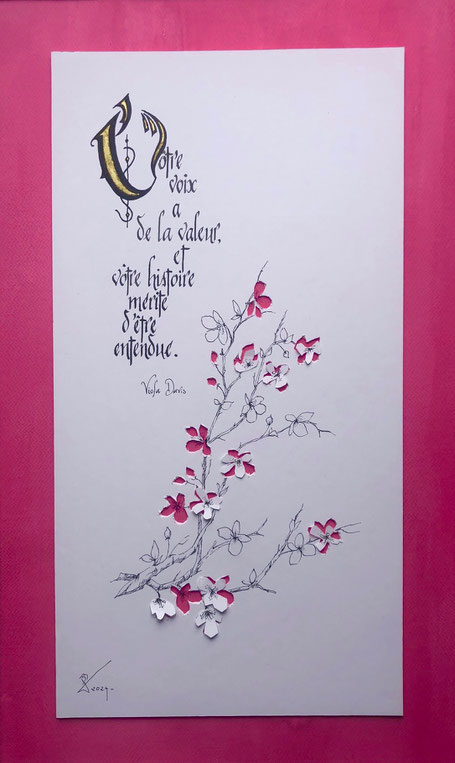 Vôtre
voix
a
de la valeur,
et
vôtre histoire
mérite
d'être
entendue.
Viola Davis
2024